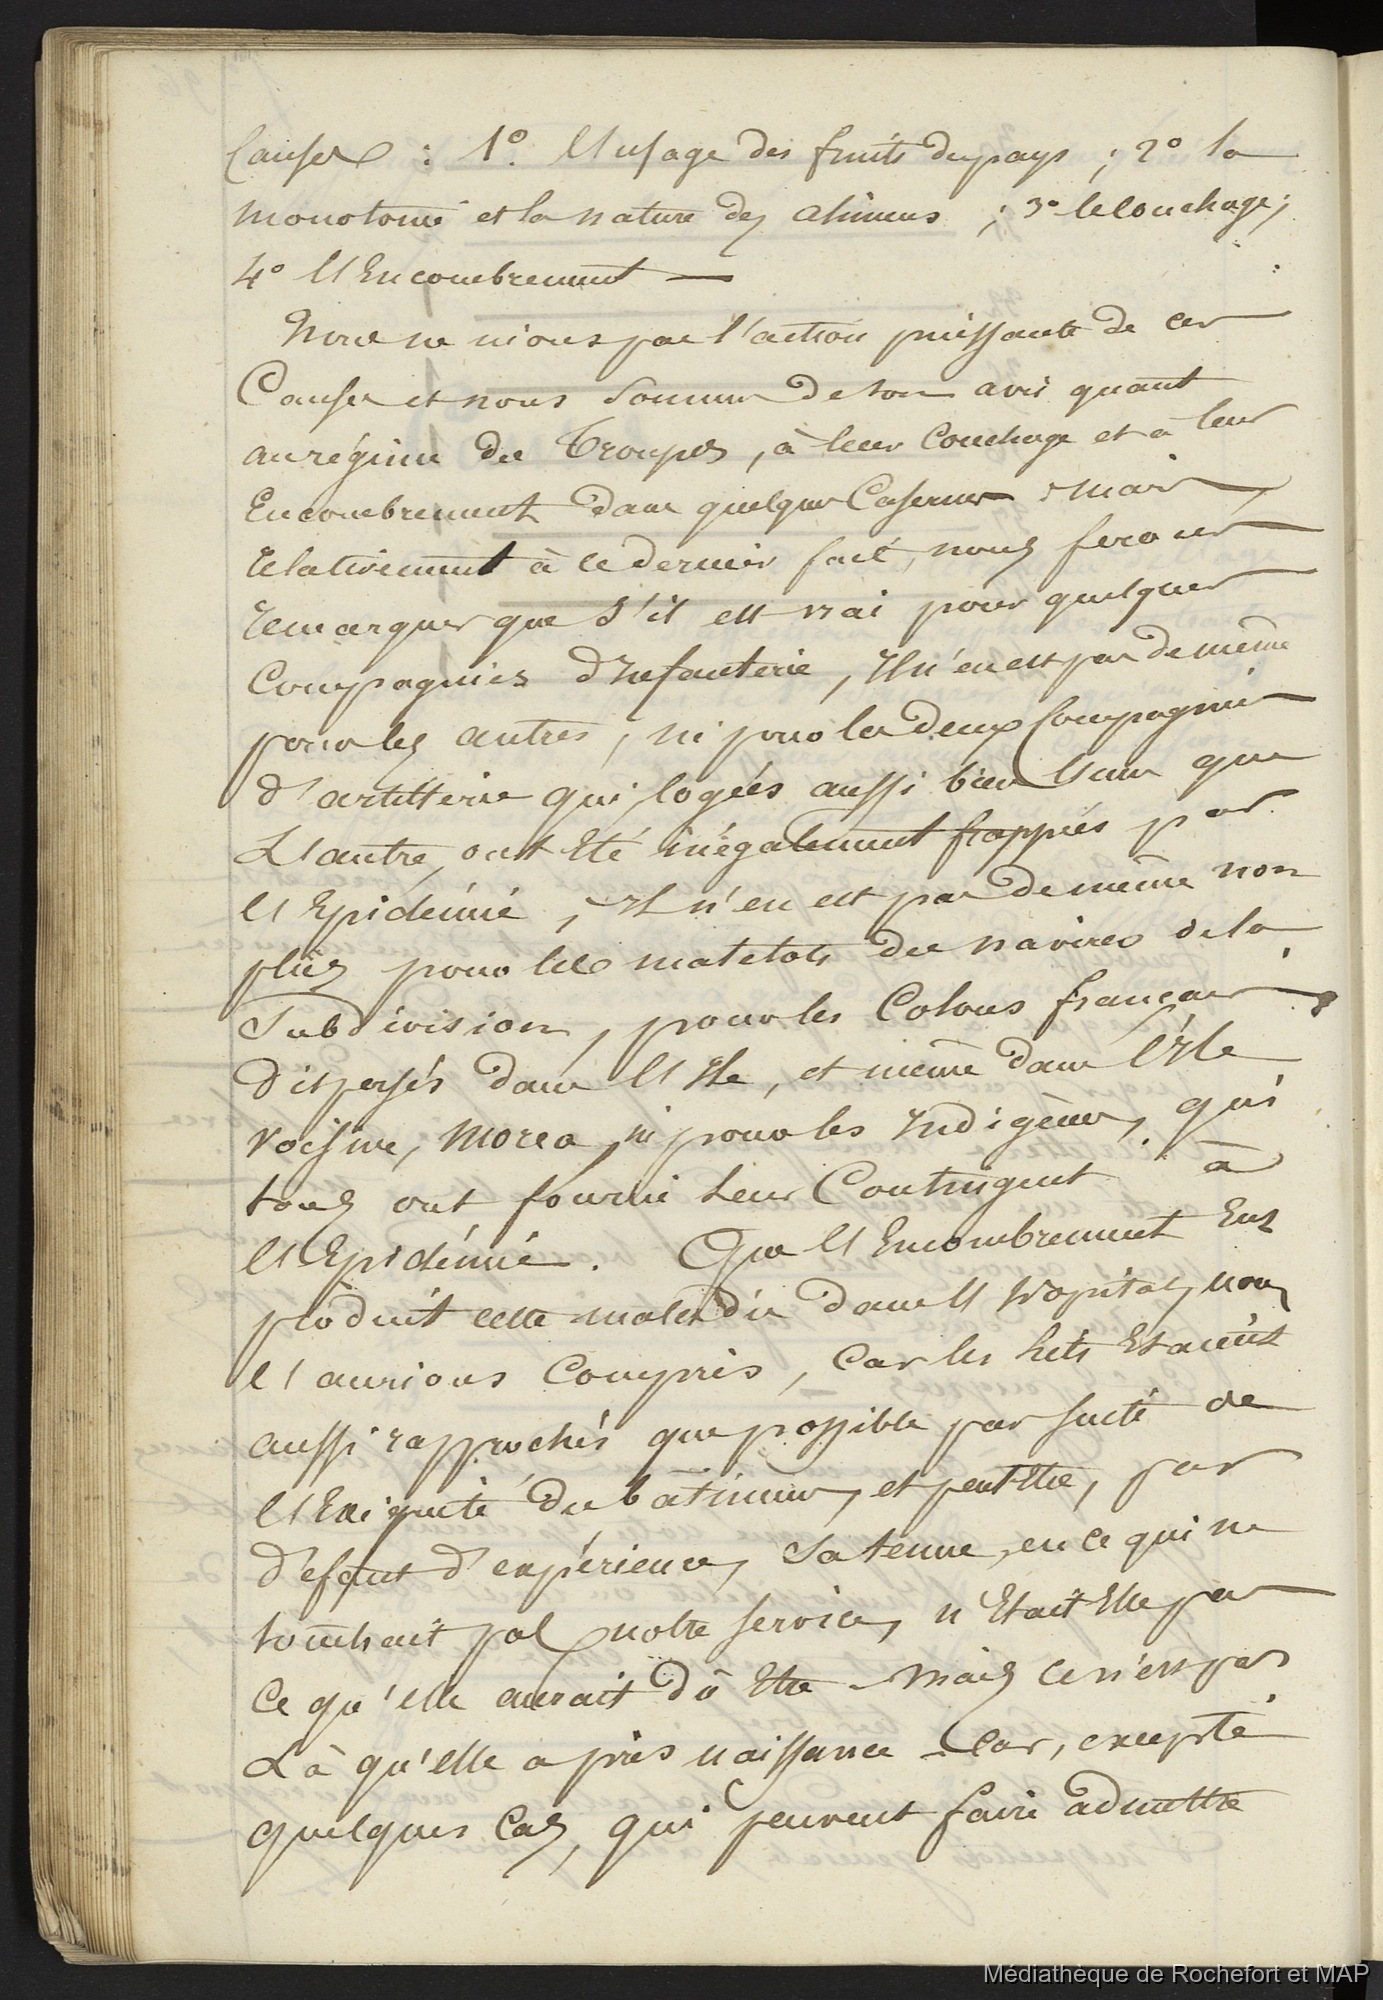 Causes : 1º. L'usage des fruits du pays ; 2º la
monotonie et la nature des alimens ; 3º le couchage ;
4º L'Encombrement —
Nous ne nions pas l'action puissante de ces
Causes et nous sommes de son avis quant
au régime des Troupes, à leur Couchage et à leur
Encombrement dans quelques Casernes - mais,
relativement à ce dernier fait, nous ferons
remarquer que s'il est vrai pour quelques
Compagnies d'Infanterie, Il n'en est pas de même
pour les autres, ni pour les deux Compagnies
d'artillerie qui, logées aussi bien l'une que
L'autre, ont été inégalement frappées par
l'Epidémie, Il n'en est pas de même non
plus pour les matelots des navires de la
Subdivision, pour les Colons français
dispersés dans l'Ile, et même dans l'Ile
voisine, Morea, ni pour les Indigènes, qui
tous ont fourni leur Contingent à
l'Epidémie. Que l'Encombrement Eut
produit cette maladie dans l'hôpital, nous
l'aurions Compris, Car les lits Etaient
aussi rapprochés que possible par suite de
l'Exiguité des bâtimens, et peut-être, par
défaut d'expérience, sa tenue, en ce qui ne
touchait pas notre service, n'Etait Elle pas
Ce qu'elle aurait dû Etre - Mais ce n'est pas
Là qu'elle a pris naissance - Car, excepté
quelques Cas, qui peuvent faire admettre
Médiathèque de Rochefort et MAP